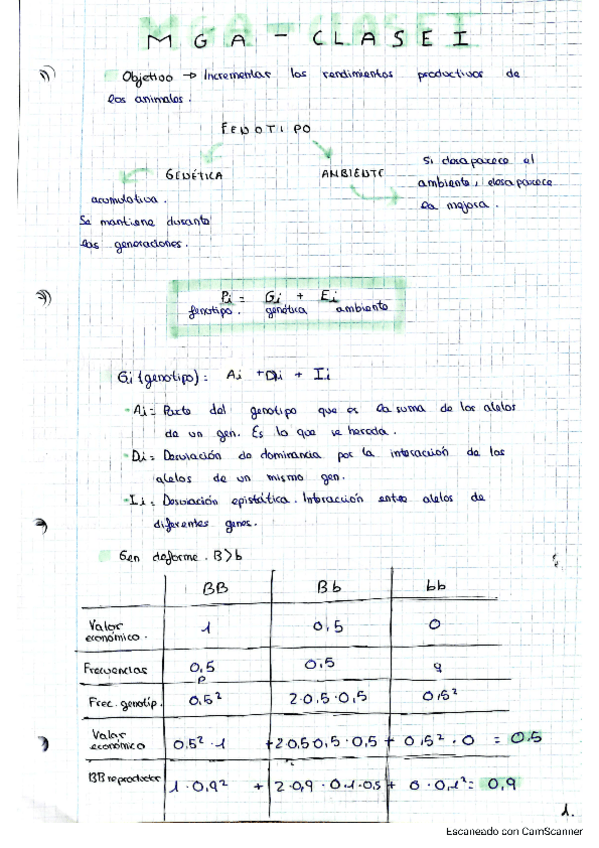 MGA - CLASE I
Objetivo → Incrementar los rendimientos productivos de
los animales.
FENOTIPO
GENÉTICA
AMBIENTE
acumulativa.
Se mantiene durante
las generaciones.
Si desaparece el
ambiente, desaparece
la mejora.
Pi = Gi + Ei
fenotipo. genética ambiente
Gi (genotipo): Ai + Di + Ii
- Ai = Parte del genotipo que es la suma de los alelos
de un gen. Es lo que se hereda.
- Di = Desviación de dominancia por la interacción de los
alelos de un mismo gen.
- Ii = Desviación epistática. Interacción entre alelos de
diferentes genes.
Gen deforme. B>b
BB Bb bb
Valor
económico. 1 0,5 0
Frecuencias 0,5 0,5 q
p
Frec. genotíp. 0,5² 2·0,5·0,5 0,5²
Valor
económico 0,5²·1 +2·0,5·0,5·0,5 + 0,5²·0 = 0,5
BB reproductor 1·0,9² + 2·0,9·0,1·0,5 + 0·0,1² = 0,9
1.
Escaneado con CamScanner